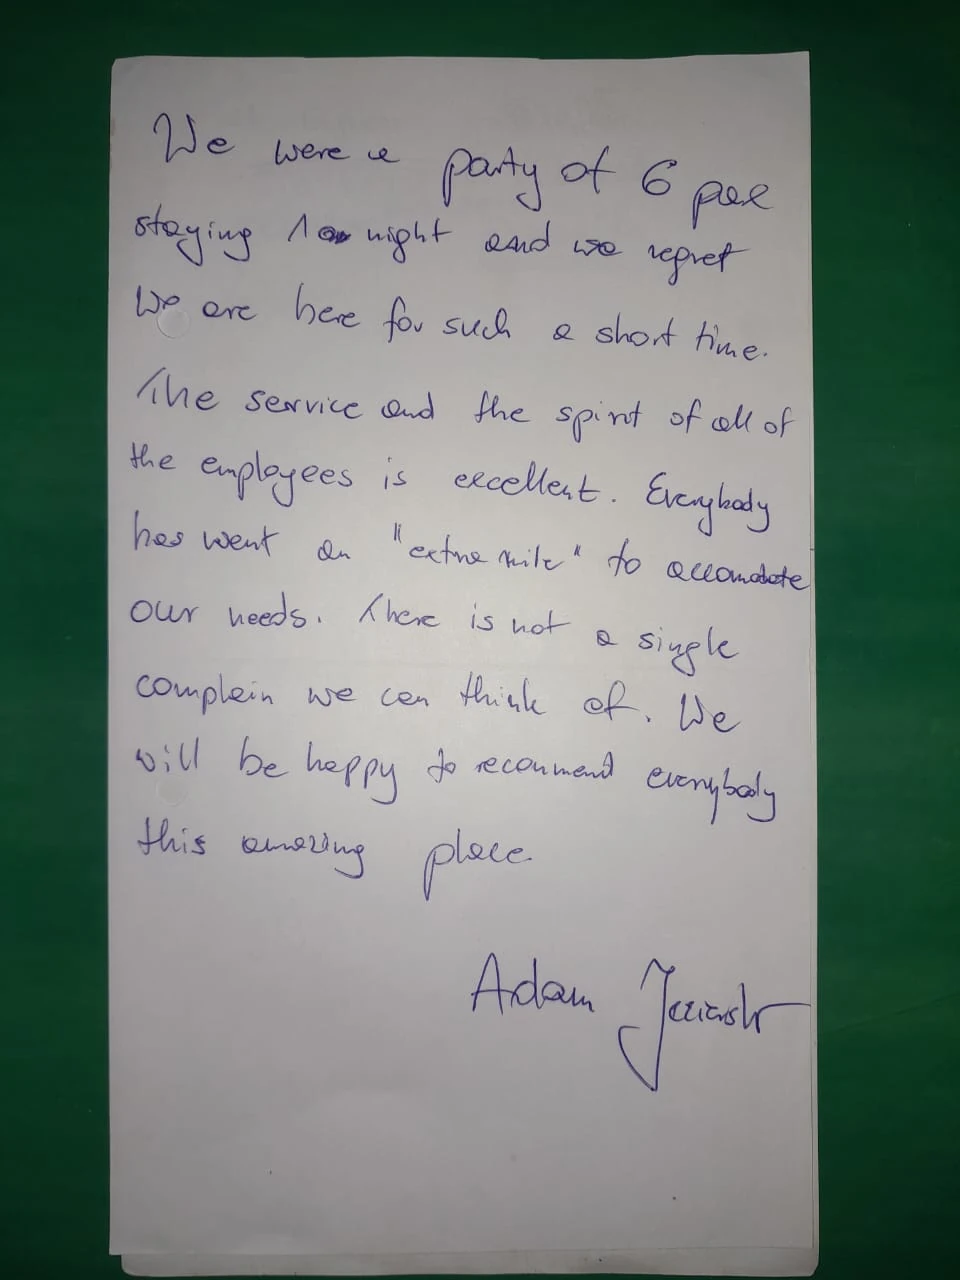 We were a party of 6 pax
staying 1 night and we regret
We are here for such a short time.
The service and the spirit of all of
the employees is excellent. Everybody
has went an "extra mile" to accomodate
our needs. There is not a single
complain we can think of. We
will be happy to recommend everybody
this amazing place.
Adam